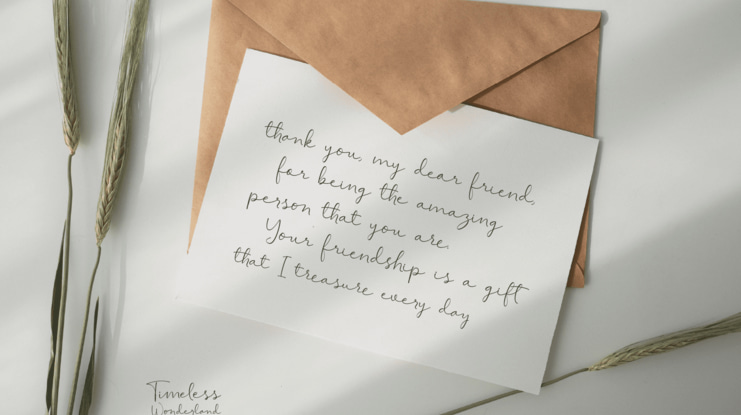 thank you, my dear friend,
for being the amazing
person that you are.
Your friendship is a gift
that I treasure every day
Timeless
Wonderland